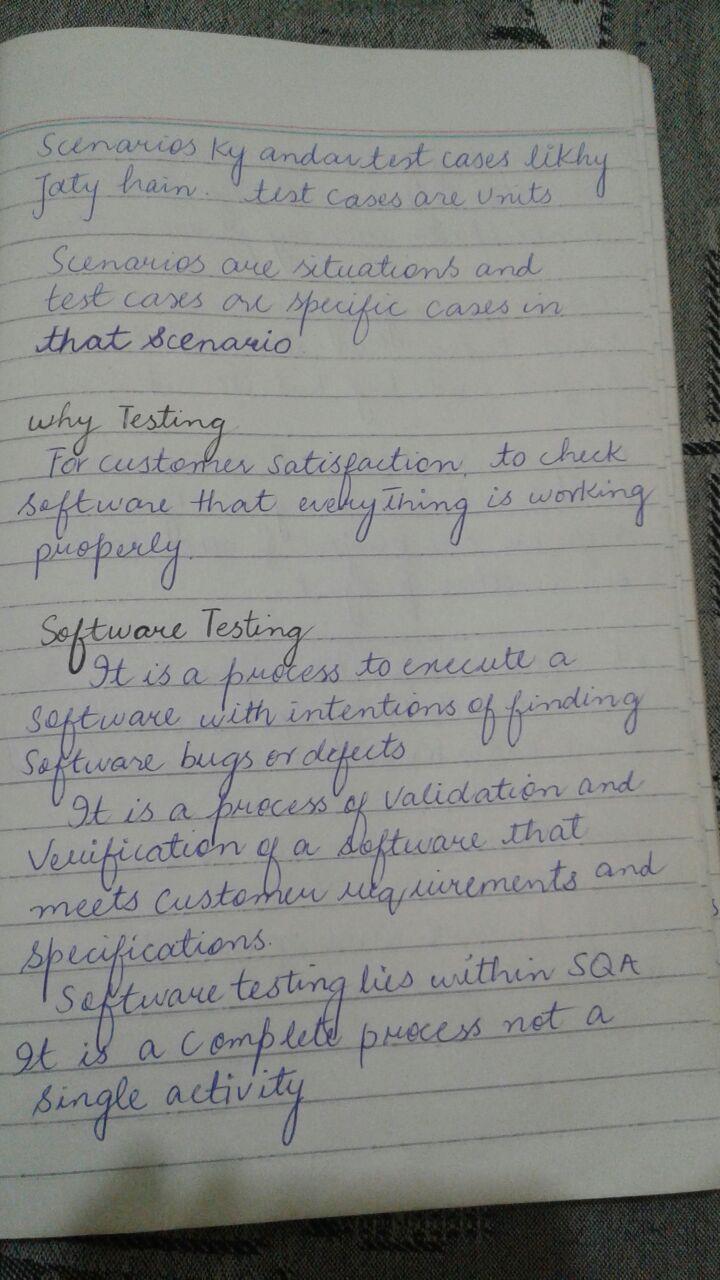 Scenarios Ky andar test cases likhy
Jaty hain. test cases are units
Scenarios are situations and
test cases are specific cases in
that scenario
why Testing
For customer satisfaction, to check
software that everything is working
properly.
Software Testing
It is a process to execute a
software with intentions of finding
software bugs or defects
It is a process of validation and
Verification of a software that
meets customer requirements and
specifications.
Software testing lies within SQA
It is a complete process not a
single activity